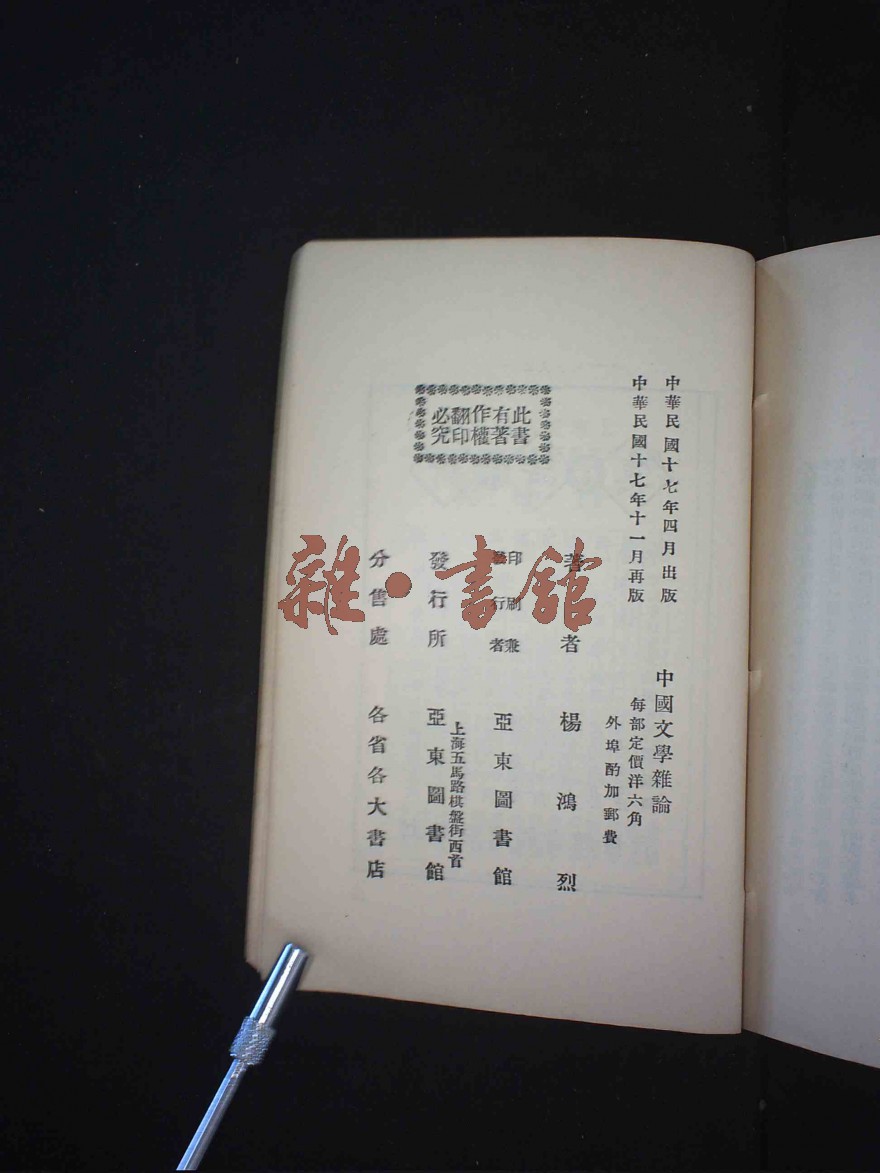 中華民國十七年四月出版
中華民國十七年十一月再版
中國文學雜論
每部定價洋六角
外埠酌加郵費
此書有著作權翻印必究
著者 楊鴻烈
印刷兼發行者 亞東圖書館
上海五馬路棋盤街西首
發行所 亞東圖書館
分售處 各省各大書店
雜·書館